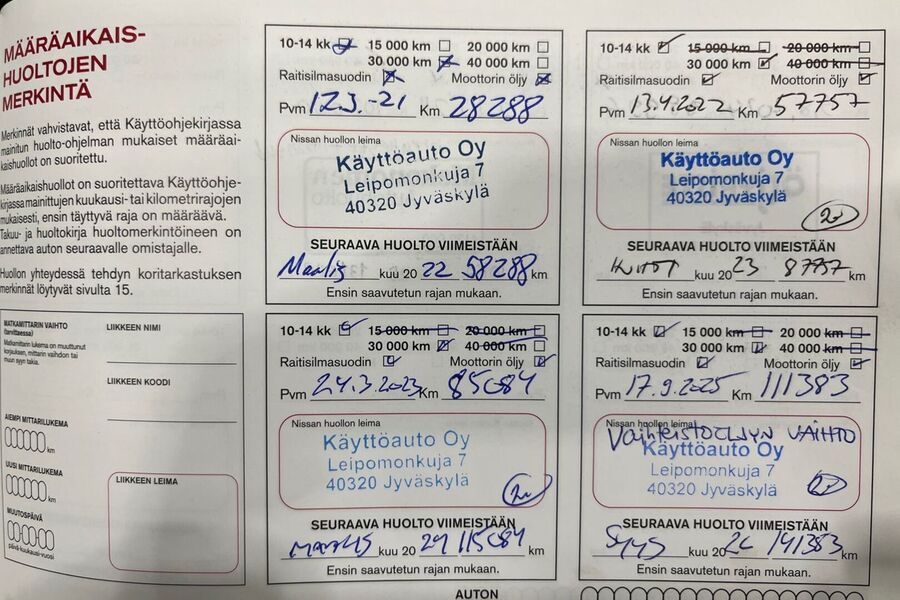 MÄÄRÄAIKAIS-
HUOLTOJEN
MERKINTÄ
Merkinnät vahvistavat, että Käyttöohjekirjassa
mainitun huolto-ohjelman mukaiset määräai-
kaishuollot on suoritettu.
Määräaikaishuollot on suoritettava Käyttöohje-
kirjassa mainittujen kuukausi- tai kilometrirajojen
mukaisesti, ensin täyttyvä raja on määräävä.
Takuu- ja huoltokirja huoltomerkintöineen on
annettava auton seuraavalle omistajalle.
Huollon yhteydessä tehdyn koritarkastuksen
merkinnät löytyvät sivulta 15.
MATKAMITTARIN VAIHTO
(tarvittaessa)
Matkamittarin lukema on muuttunut
korjauksen, mittarin vaihdon tai
muun syyn takia.
AIEMPI MITTARILUKEMA
km
UUSI MITTARILUKEMA
km
MUUTOSPÄIVÄ
päivä-kuukausi-vuosi
LIIKKEEN NIMI
LIIKKEEN KOODI
LIIKKEEN LEIMA
10-14 kk 15 000 km 20 000 km
30 000 km 40 000 km
Raitisilmasuodin Moottorin öljy
Pvm 12.3.-21 Km 28288
Nissan huollon leima
Käyttöauto Oy
Leipomonkuja 7
40320 Jyväskylä
SEURAAVA HUOLTO VIIMEISTÄÄN
Maalis kuu 20 22 58288 km
Ensin saavutetun rajan mukaan.
10-14 kk 15 000 km 20 000 km
30 000 km 40 000 km
Raitisilmasuodin Moottorin öljy
Pvm 13.4.2022 Km 57757
Nissan huollon leima
Käyttöauto Oy
Leipomonkuja 7
40320 Jyväskylä
SEURAAVA HUOLTO VIIMEISTÄÄN
kuu 20 23 87757 km
Ensin saavutetun rajan mukaan.
10-14 kk 15 000 km 20 000 km
30 000 km 40 000 km
Raitisilmasuodin Moottorin öljy
Pvm 24.3.2023 Km 85084
Nissan huollon leima
Käyttöauto Oy
Leipomonkuja 7
40320 Jyväskylä
SEURAAVA HUOLTO VIIMEISTÄÄN
kuu 20 24 115084 km
Ensin saavutetun rajan mukaan.
10-14 kk 15 000 km 20 000 km
30 000 km 40 000 km
Raitisilmasuodin Moottorin öljy
Pvm 17.9.2025 Km 111383
Nissan huollon leima
Vaihteistoöljyn VAIHTO
Käyttöauto Oy
Leipomonkuja 7
40320 Jyväskylä
SEURAAVA HUOLTO VIIMEISTÄÄN
Syys kuu 20 26 141383 km
Ensin saavutetun rajan mukaan.
AUTON